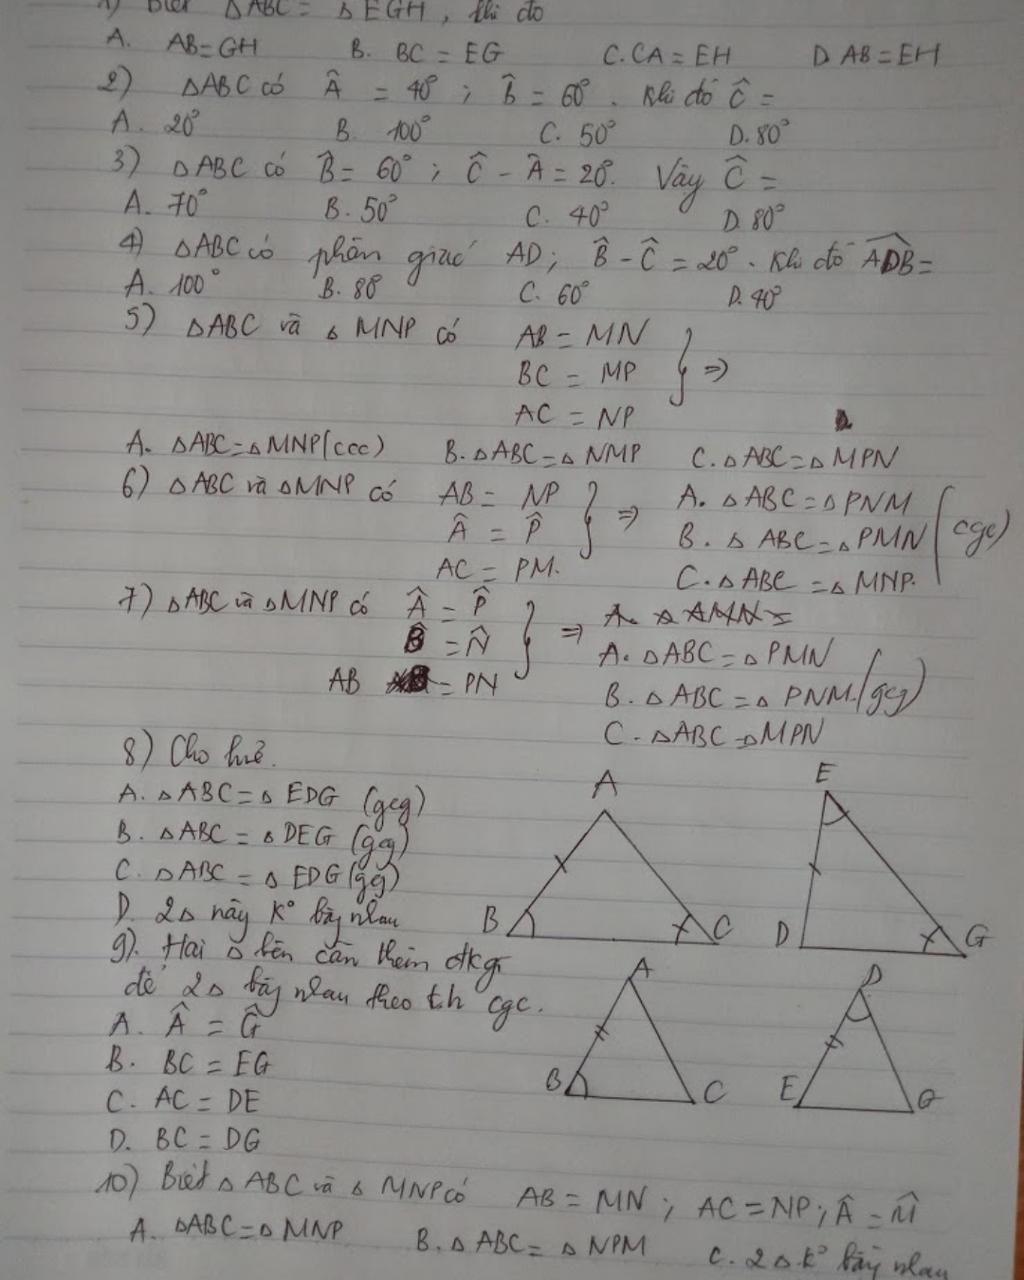 1) Biết ΔABC = ΔEGH, thì đó
A. AB=GH B. BC = EG C. CA = EH D AB = EH
2) ΔABC có Â = 40° ; B̂ = 60°. Khi đó Ĉ =
A. 20° B. 100° C. 50° D. 80°
3) ΔABC có B̂ = 60° ; Ĉ - Â = 20°. Vậy Ĉ =
A. 70° B. 50° C. 40° D. 80°
4) ΔABC có phân giác AD; B̂ - Ĉ = 20°. Khi đó ADB =
A. 100° B. 80° C. 60° D. 40°
5) ΔABC và Δ MNP có AB = MN
BC = MP } =>
AC = NP
A. ΔABC = Δ MNP (ccc) B. ΔABC = Δ NMP C. ΔABC = Δ MPN
6) ΔABC và ΔMNP có AB = NP } => A. ΔABC = ΔPNM
Â = P̂ B. Δ ABC = Δ PMN (cgc)
AC = PM. C. Δ ABC = Δ MNP.
7) ΔABC và ΔMNP có Â = P̂ } =>
B̂ = N̂ A. ΔABC = Δ PMN
AB = PN B. Δ ABC = Δ PNM. (gcg)
C. ΔABC = ΔMPN
8) Cho hvẽ.
A. ΔABC = Δ EDG (gcg)
B. ΔABC = Δ DEG (gcg)
C. ΔABC = Δ EDG (gg)
D. 2Δ này k° bằng nhau
A
B
C
E
D
G
9). Hai Δ bên cần thêm đk gì
để 2Δ bằng nhau theo t.h cgc.
A. Â = Ĝ
B. BC = EG
C. AC = DE
D. BC = DG
A
B
C
D
E
G
10) Biết Δ ABC và Δ MNP có AB = MN ; AC = NP ; Â = M̂
A. ΔABC = Δ MNP B. Δ ABC = Δ NPM C. 2Δ k° bằng nhau